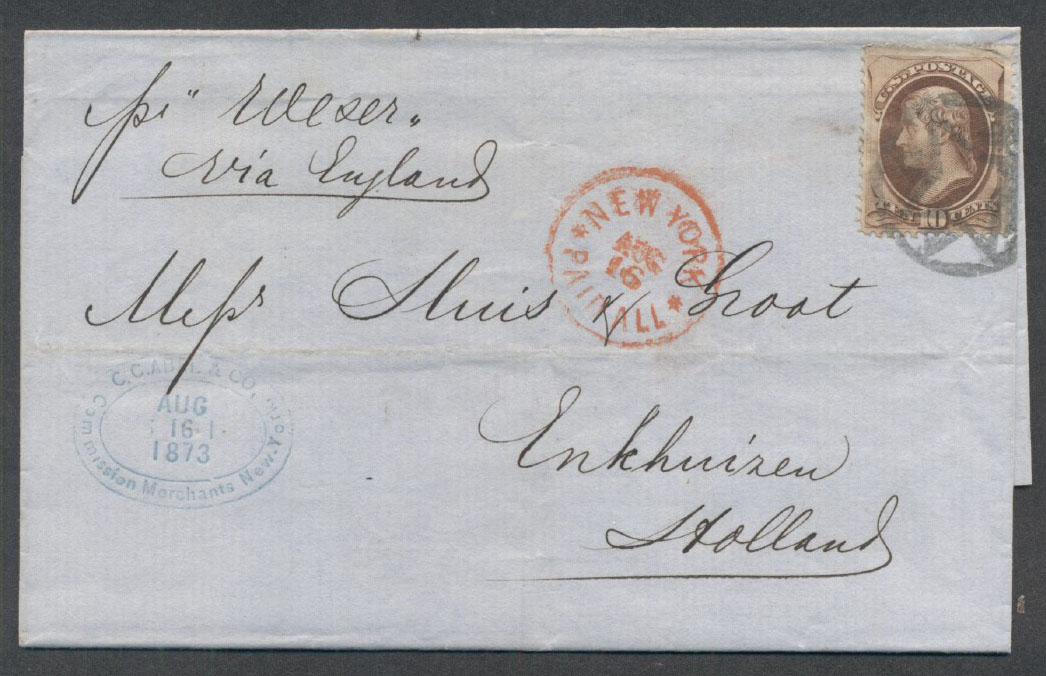 pr "Weser"
via England
U.S. POSTAGE
TEN 10 CENTS
NEW YORK
AUG
16
PAID ALL
Messrs Sluis & Groot
C. C. ABEL & CO.
AUG
16
1873
Commission Merchants New-York
Enkhuizen
Holland